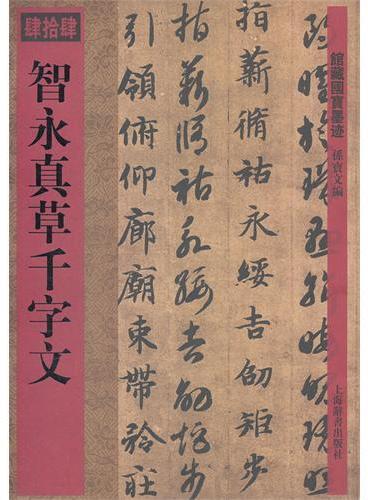 肆拾肆
智永真草千字文
館藏國寶墨迹
孫寶文編
上海辭書出版社
指薪脩祜永綏吉劭矩步
指薪脩祜永綏吉劭矩步
引領俯仰廊廟束帶矜莊